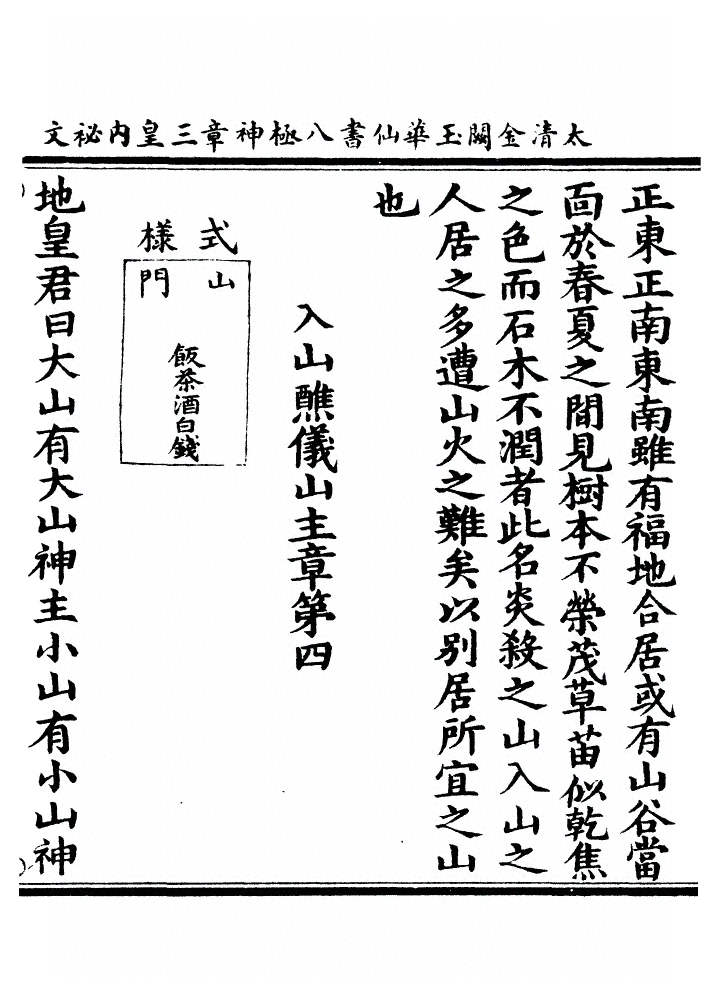 太清金闕玉華仙書八極神章三皇內祕文
正東正南東南雖有福地合居或有山谷當
靣於春夏之間見樹本不榮茂草苗似乾焦
之色而石木不潤者此名炎殺之山入山之
人居之多遭山火之難矣以别居所宜之山
也
入山醮儀山主章第四
式樣
山門
飯茶酒白錢
地皇君曰大山有大山神主小山有小山神